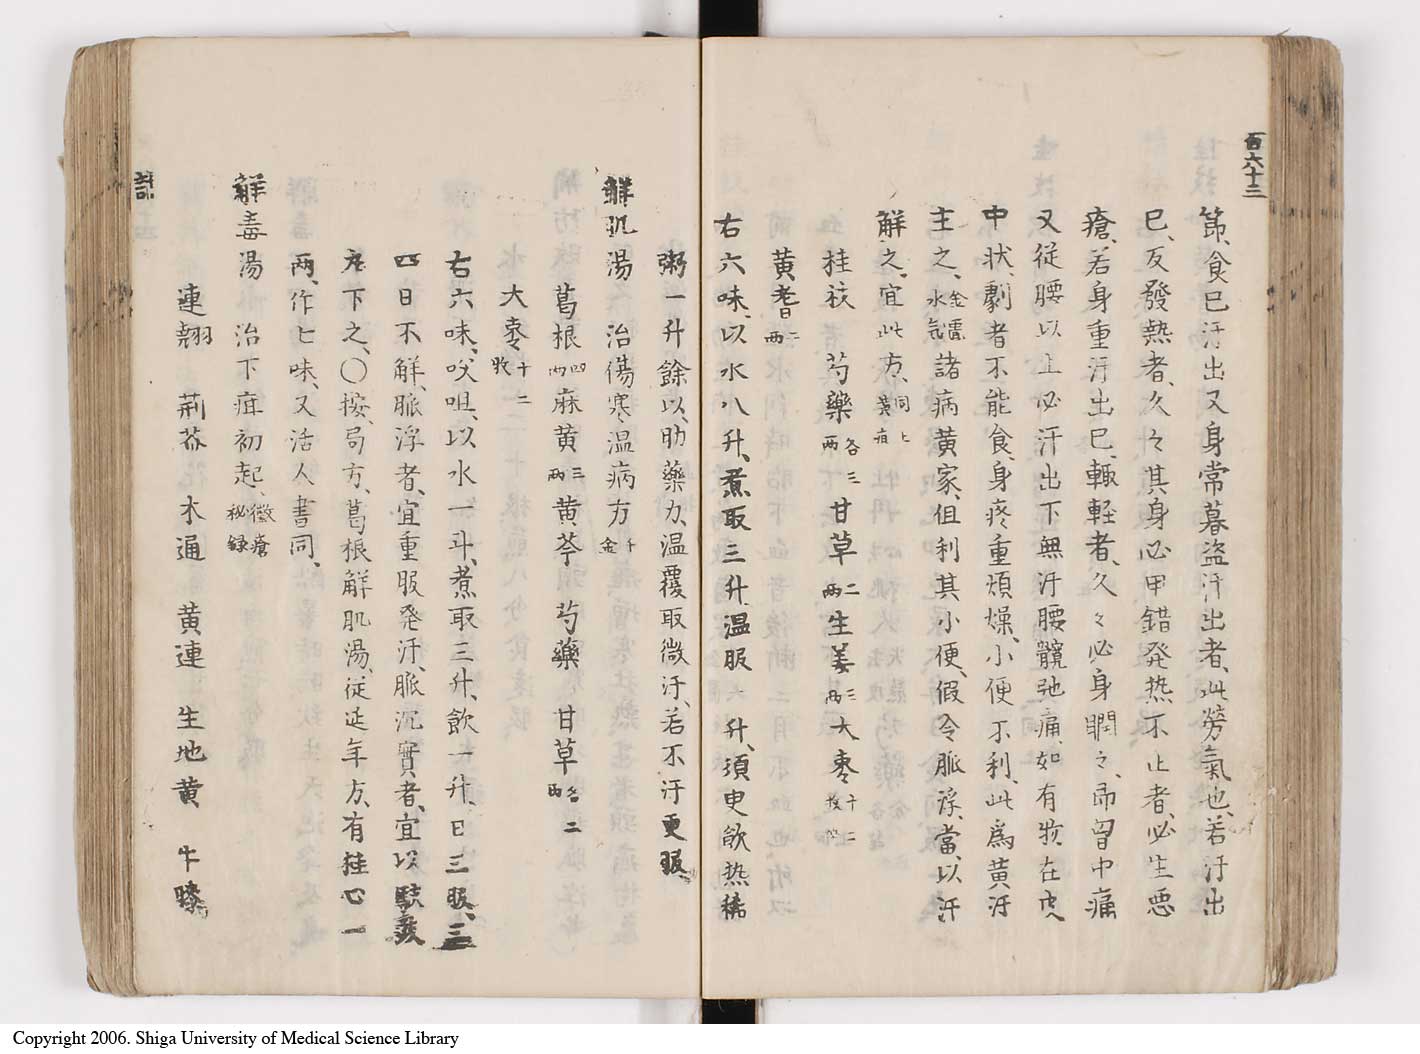 百六十三
節、食已汗出又身常暮盗汗出者、此労氣也、若汗出
已、反發熱者、久々其身必甲錯発热不止者、必生悪
瘡、若身重汗出已、輙軽者、久々必身瞤々、而胷中痛
又従腰以上必汗出下無汗腰髖弛痛、如有物在皮
中状、劇者不能食、身疼重煩燥、小便不利、此為黄汗
主之、金匱水氣諸病黄家、但利其小便、假令脈浮、當以汗
解之、宜此方、同上黄疸
桂枝 芍藥各三両甘草二両生姜三両大枣十二枚
黄耆二両
右六味、以水八升、煮取三升、温服一升、須臾飲热稀
粥一升餘以、助藥力、温覆取微汗、若不汗更服、
解肌湯 治傷寒温病方千金
葛根四両麻黄三両黄芩 芍藥 甘草各二両
大枣十二枚
右六味、㕮咀、以水一斗、煮取三升、飲一升、日三服、三
四日不解、脈浮者、宜重服発汗、脈沉實者、宜以駃豉
丸下之、〇按、局方、葛根解肌湯、従延年方、有桂心一
両、作七味、又活人書同、
解毒湯 治下疳初起、黴瘡秘録
連翹 荊芥 木通 黄連 生地黄 牛膝